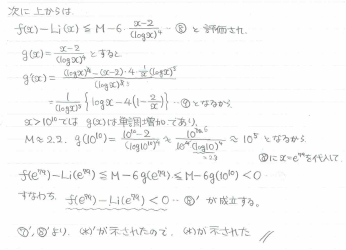 次に上からは、
f(x)-Li(x) ≦ M-6・(x-2)/(log x)^4 … ⑧ と評価され、
g(x)= (x-2)/(log x)^4 とすると
g'(x)= ((log x)^4-(x-2)・4・1/x (log x)^3)/(log x)^8
= 1/(log x)^5 {log x-4(1-2/x)} … ⑨ となるから、
x>10^10 では g(x)は単調増加であり、
M≈2.2, g(10^10)= (10^10-2)/(log 10^10)^4 ≈ となるから
f(e^)-Li(e^) ≦ M-6g(e^) ≦ M-6g(10^10)<0
すなわち、f(e^)-Li(e^)<0 … が成立する。
より、(*)'が示されたので、(*)が示された //